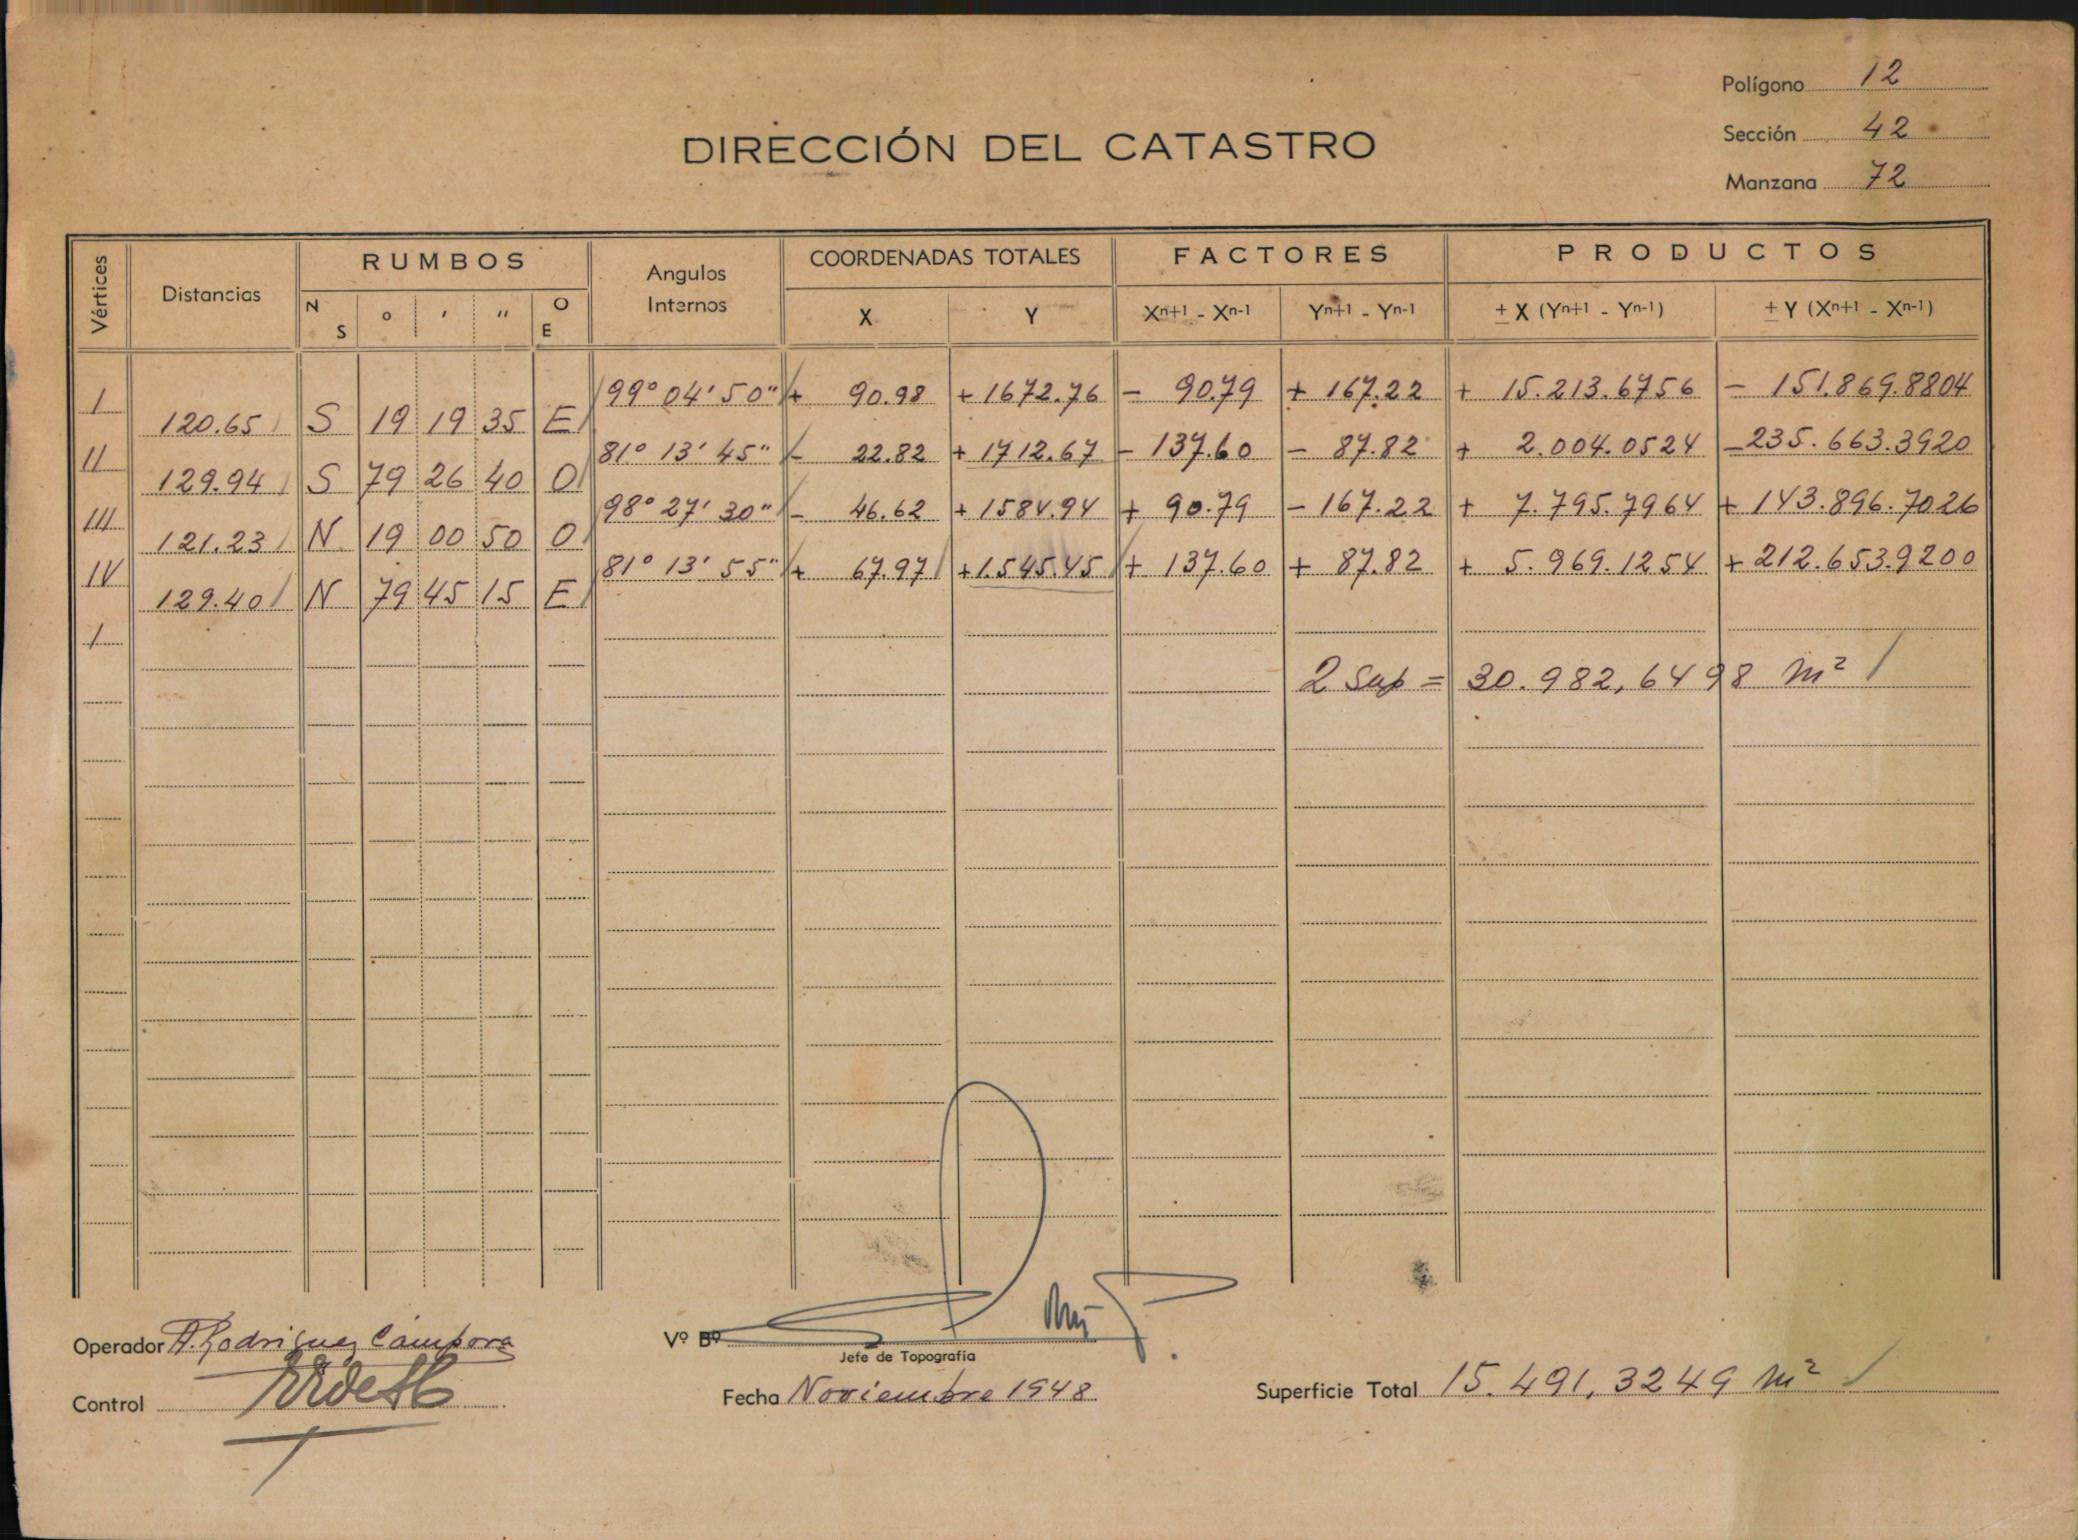 Polígono 12
DIRECCIÓN DEL CATASTRO
Sección 42
Manzana 72
Vértices Distancias RUMBOS Angulos Internos COORDENADAS TOTALES FACTORES PRODUCTOS
N S ° ' " O E X Y Xn+1 - Xn-1 Yn+1 - Yn-1 ± X (Yn+1 - Yn-1) ± Y (Xn+1 - Xn-1)
I 99° 04' 50" + 90.98 + 1672.76 - 90.79 + 167.22 + 15.213.6756 - 151.869.8804
120.65 S 19 19 35 E
II 81° 13' 45" - 22.82 + 1712.67 - 137.60 - 87.82 + 2.004.0524 - 235.663.3920
129.94 S 79 26 40 O
III 98° 27' 30" - 46.62 + 1584.94 + 90.79 - 167.22 + 7.795.7964 + 143.896.7026
121.23 N 19 00 50 O
IV 81° 13' 55" + 67.97 + 1.545.45 + 137.60 + 87.82 + 5.969.1254 + 212.653.9200
129.40 N 79 45 15 E
I
2 Sup = 30.982,6498 m²
Operador A. Rodriguez Cámpora
Vº Bº
Jefe de Topografía
Control
Fecha Noviembre 1948
Superficie Total 15.491,3249 m²